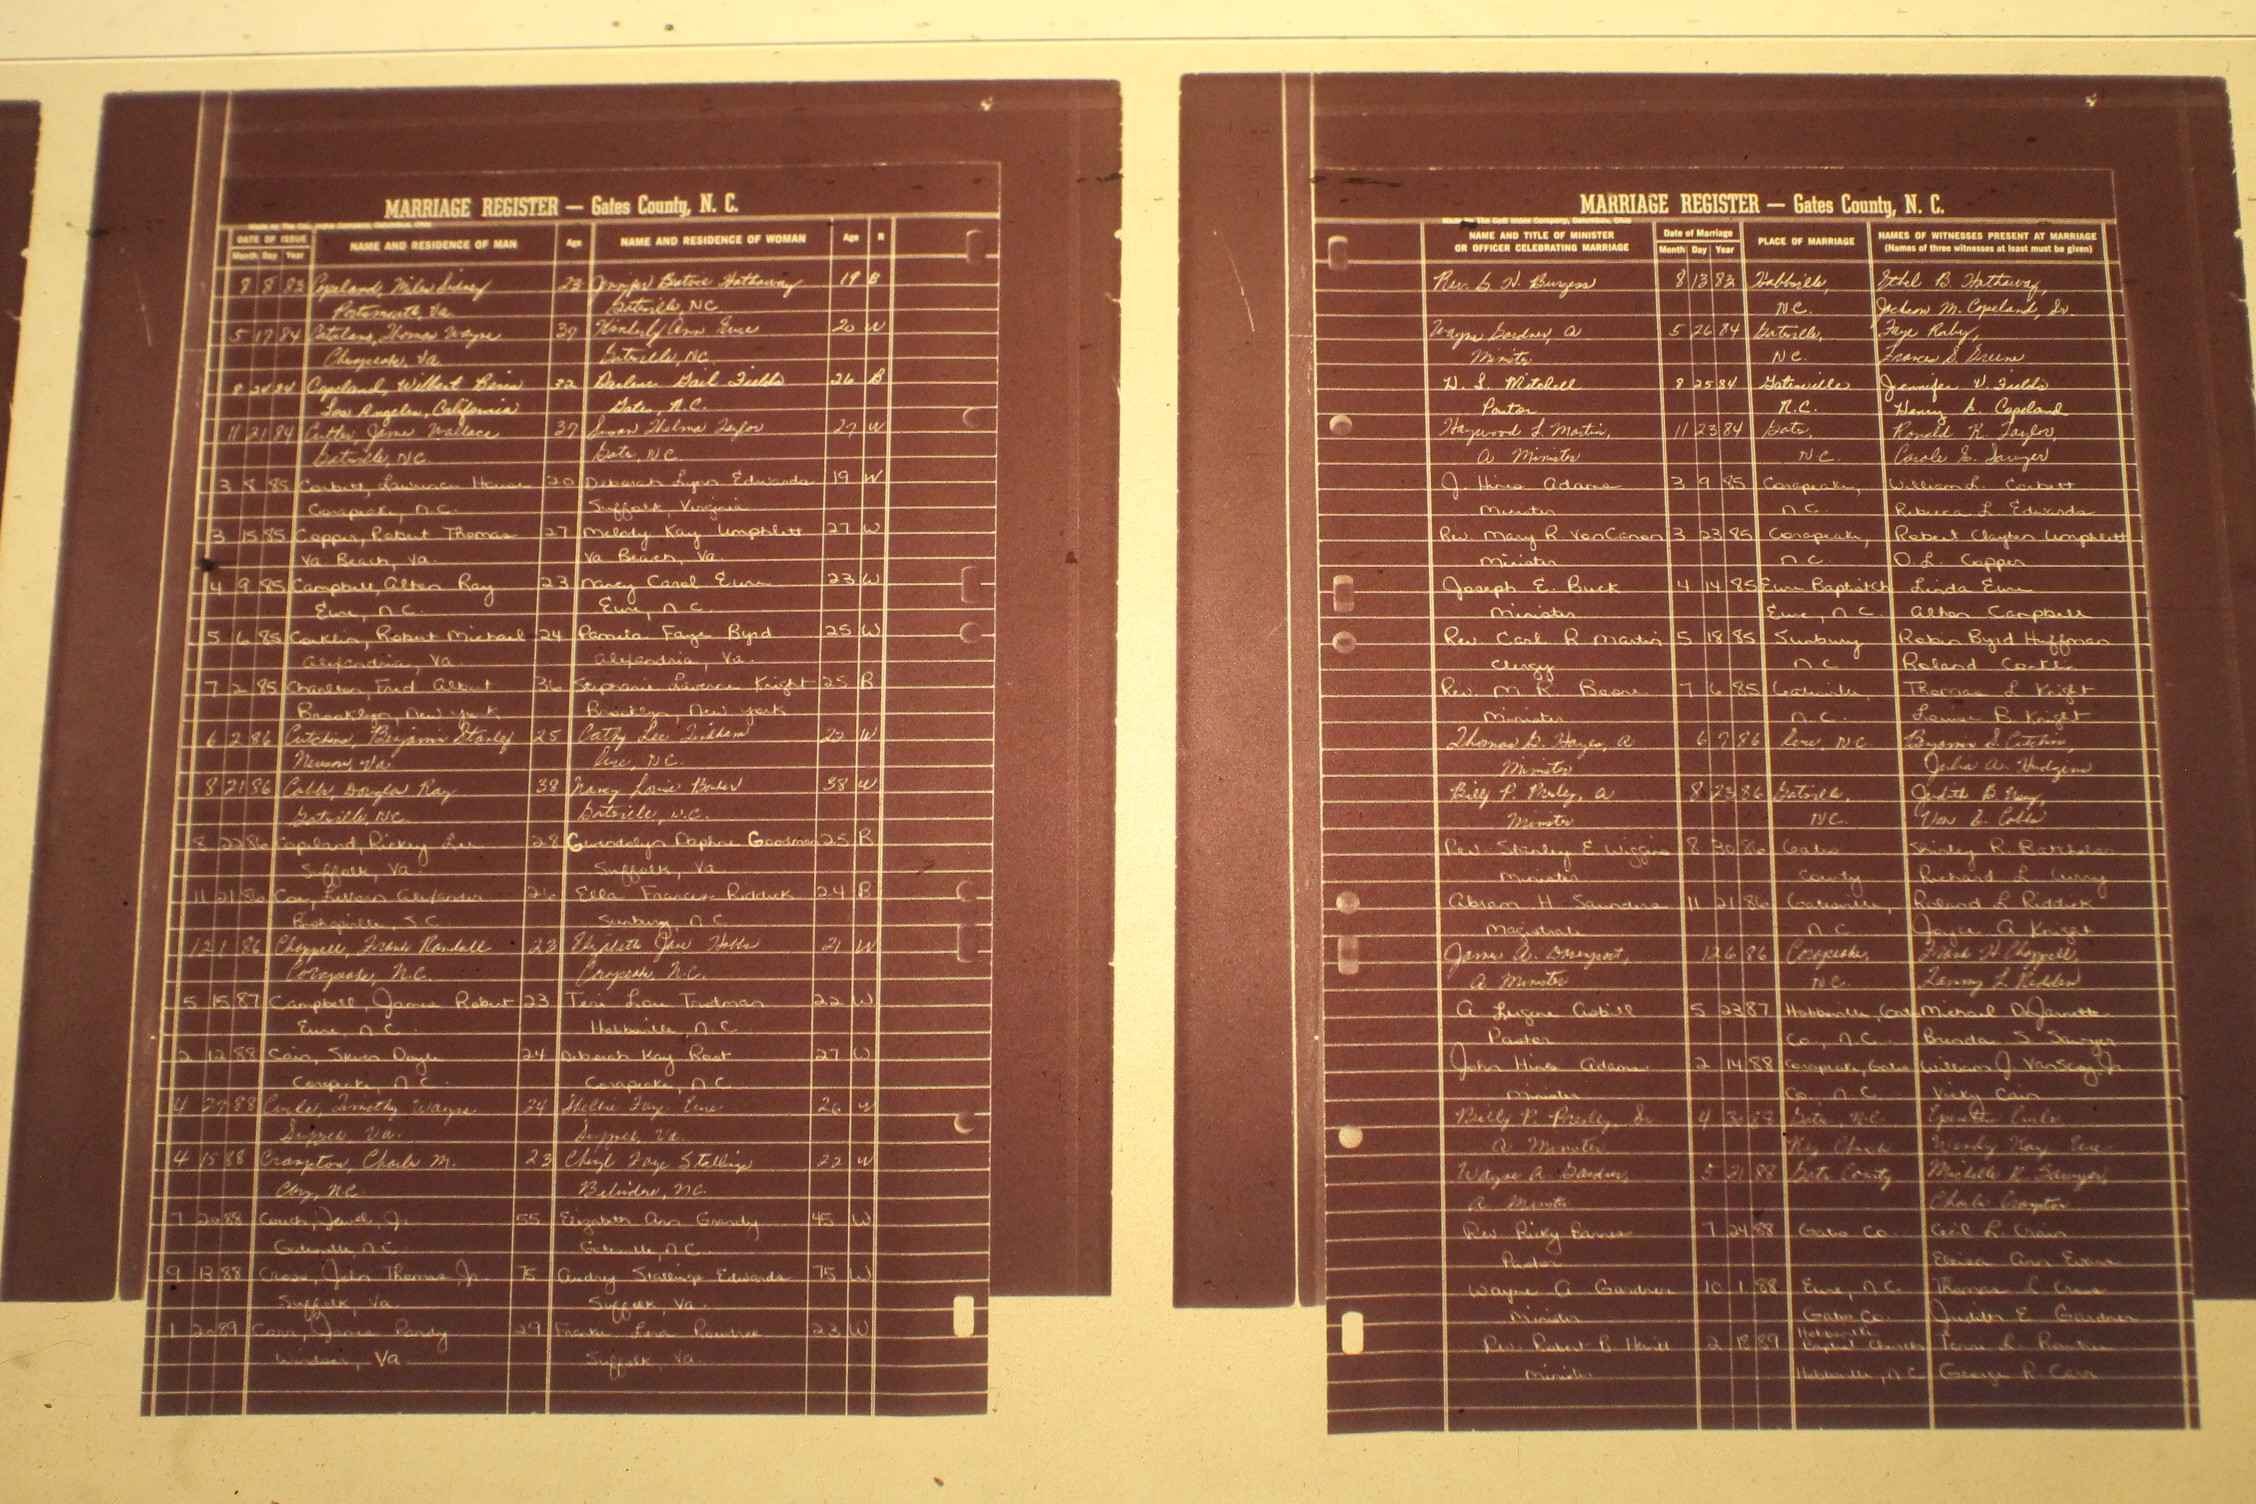 MARRIAGE REGISTER — Gates County, N. C.
DATE OF ISSUE
Month Day Year
NAME AND RESIDENCE OF MAN
Age
NAME AND RESIDENCE OF WOMAN
Age
R
8 8 83 Copeland, Miles Sidney 23 Jennifer Beatrice Hathaway 19 B
Portsmouth, Va. Gatesville, NC
5 17 84 Thomas Wayne 37 Kimberly Ann Eure 20 W
Chesapeake, Va Gatesville, NC
8 24 84 Copeland, Wilbert 32 Darlene Gail Fields 26 B
Los Angeles, California Gates, N.C.
11 21 84 Cutler, James Wallace 37 Susan Thelma Taylor 27 W
Gatesville, NC. Gates, NC
3 8 85 Corbett, Lawrence House 20 Deborah Lynn Edwards 19 W
Corapeake, N.C. Suffolk, Virginia
3 15 85 Copper, Robert Thomas 27 Melody Kay Umphlett 27 W
Va Beach, Va. Va Beach, Va
4 9 85 Campbell, Alton Ray 23 Nancy Carol Eure 23 W
Eure, N.C. Eure, N.C.
5 16 85 Conklin, Robert Michael 24 Pamela Faye Byrd 25 W
Alexandria, Va. Alexandria, Va.
7 2 85 Charlton, Fred Albert 36 Stephanie Lawrence Knight 25 B
Brooklyn, New York Brooklyn, New York
6 2 86 Cutchins, Benjamin Stanley 25 Cathy Lee 22 W
Newsom, Va. Eure, NC.
8 21 86 Cobbs, Douglas Ray 38 Nancy Louise Baker 38 W
Gatesville, NC Gatesville, N.C.
8 22 86 Copeland, Rickey Lee 28 Gwendolyn Daphne Goodman 25 B
Suffolk, Va. Suffolk, Va
11 21 86 Alexander 26 Ella Frances Riddick 24 B
S.C. Sunbury, N.C
12 1 86 Chappell, Frank Randall 23 Elizabeth Jane Hobbs 21 W
Corapeake, N.C. Corapeake, N.C.
5 15 87 Campbell, James Robert 23 Teri Lou Trotman 22 W
Eure, N.C. Hobbsville, N.C
2 12 88 Cain, Steven Doyle 24 Deborah Kay Root 27 W
Corapeake, N.C Corapeake, N.C
4 27 88 Timothy Wayne 24 Shellie Faye Eure 26 W
Va. Va.
4 15 88 Crampton, Charles M. 23 Cheryl Faye Stallings 22 W
NC. Belvidere, NC.
7 20 88 Couch, Jewel, Jr. 55 Elizabeth Ann Grandy 45 W
Gatesville, N.C. Gatesville, N.C.
9 13 88 Cross, John Thomas, Jr. 75 Audrey Stallings Edwards 75 W
Suffolk, Va. Suffolk, Va.
1 20 89 Carr, James Randy 29 Lora Rountree 23 W
Windsor, Va Suffolk, Va.
MARRIAGE REGISTER — Gates County, N. C.
Made by The Cott Index Company, Columbus, Ohio
NAME AND TITLE OF MINISTER
OR OFFICER CELEBRATING MARRIAGE
Date of Marriage
Month Day Year
PLACE OF MARRIAGE
NAMES OF WITNESSES PRESENT AT MARRIAGE
(Names of three witnesses at least must be given)
Rev. Burgess 8 13 83 Hobbsville, Ethel B. Hathaway,
NC. Jackson M. Copeland, Sr.
Wayne Gardner, A 5 26 84 Gatesville, Faye Raby,
Minister NC. Frances S. Greene
H. L. Mitchell 8 25 84 Gatesville Jennifer V. Fields
Pastor N.C. Henry L. Copeland
Haywood L. Martin, 11 23 84 Gates, Ronald K. Taylor,
A Minister N.C. Carole E. Sawyer
J. Hines Adams 3 9 85 Corapeake, William L. Corbett
Minister N.C. Rebecca L. Edwards
Rev. Mary R VonCanon 3 23 85 Corapeake, Robert Clayton Umphlett
Minister N.C. O.L. Copper
Joseph E. Buck 4 14 85 Eure Baptist Ch Linda Eure
Minister Eure, N.C. Alton Campbell
Rev. Carl R Martin 5 18 85 Sunbury Robin Byrd Huffman
Clergy N.C. Roland Conklin
Rev. M. R. Boone 7 6 85 Gatesville, Thomas L Knight
Minister N.C. Louise B. Knight
Thomas G. Hayes, A 6 7 86 Eure, NC Benjamin S. Cutchin,
Minister Julia A. Hudgins
Billy P. Presley, A 8 23 86 Gatesville, Judith B.
Minister NC. Von E. Cobbs
Rev. Stanley E Wiggins 8 30 86 Gates Shirley R. Batchelor
Minister County Richard L. Curry
Abram H. Saunders 11 21 86 Gatesville, Roland L Riddick
Magistrate N.C. Joyce A Knight
James A. Davenport, 12 6 86 Corapeake, Frank H. Chappell,
A Minister N.C. Tammy L. Redden
A Eugene Asbill 5 23 87 Hobbsville, Gates Michael DeJarnette
Pastor Co., N.C. Brenda S Sawyer
John Hines Adams 2 14 88 Corapeake, Gates William J. VanScoy, Jr
Minister Co. N.C. Vicky Cain
Billy P. Presley, Sr 4 30 88 Gates, N.C.
A Minister Church Wendy Kay Eure
Wayne A. Gardner, 5 21 88 Gates County Michelle R. Sawyer,
A Minister Charles Crampton
Rev Ricky Barnes 7 24 88 Gates Co. Cecil L. Crain
Pastor Eloisa Ann Evans
Wayne A Gardner 10 1 88 Eure, N.C. Thomas L Cross
Minister Gates Co. Judith E. Gardner
Rev. Robert B 2 18 89 Hobbsville Baptist Church
Minister Hobbsville, N.C George R. Carr